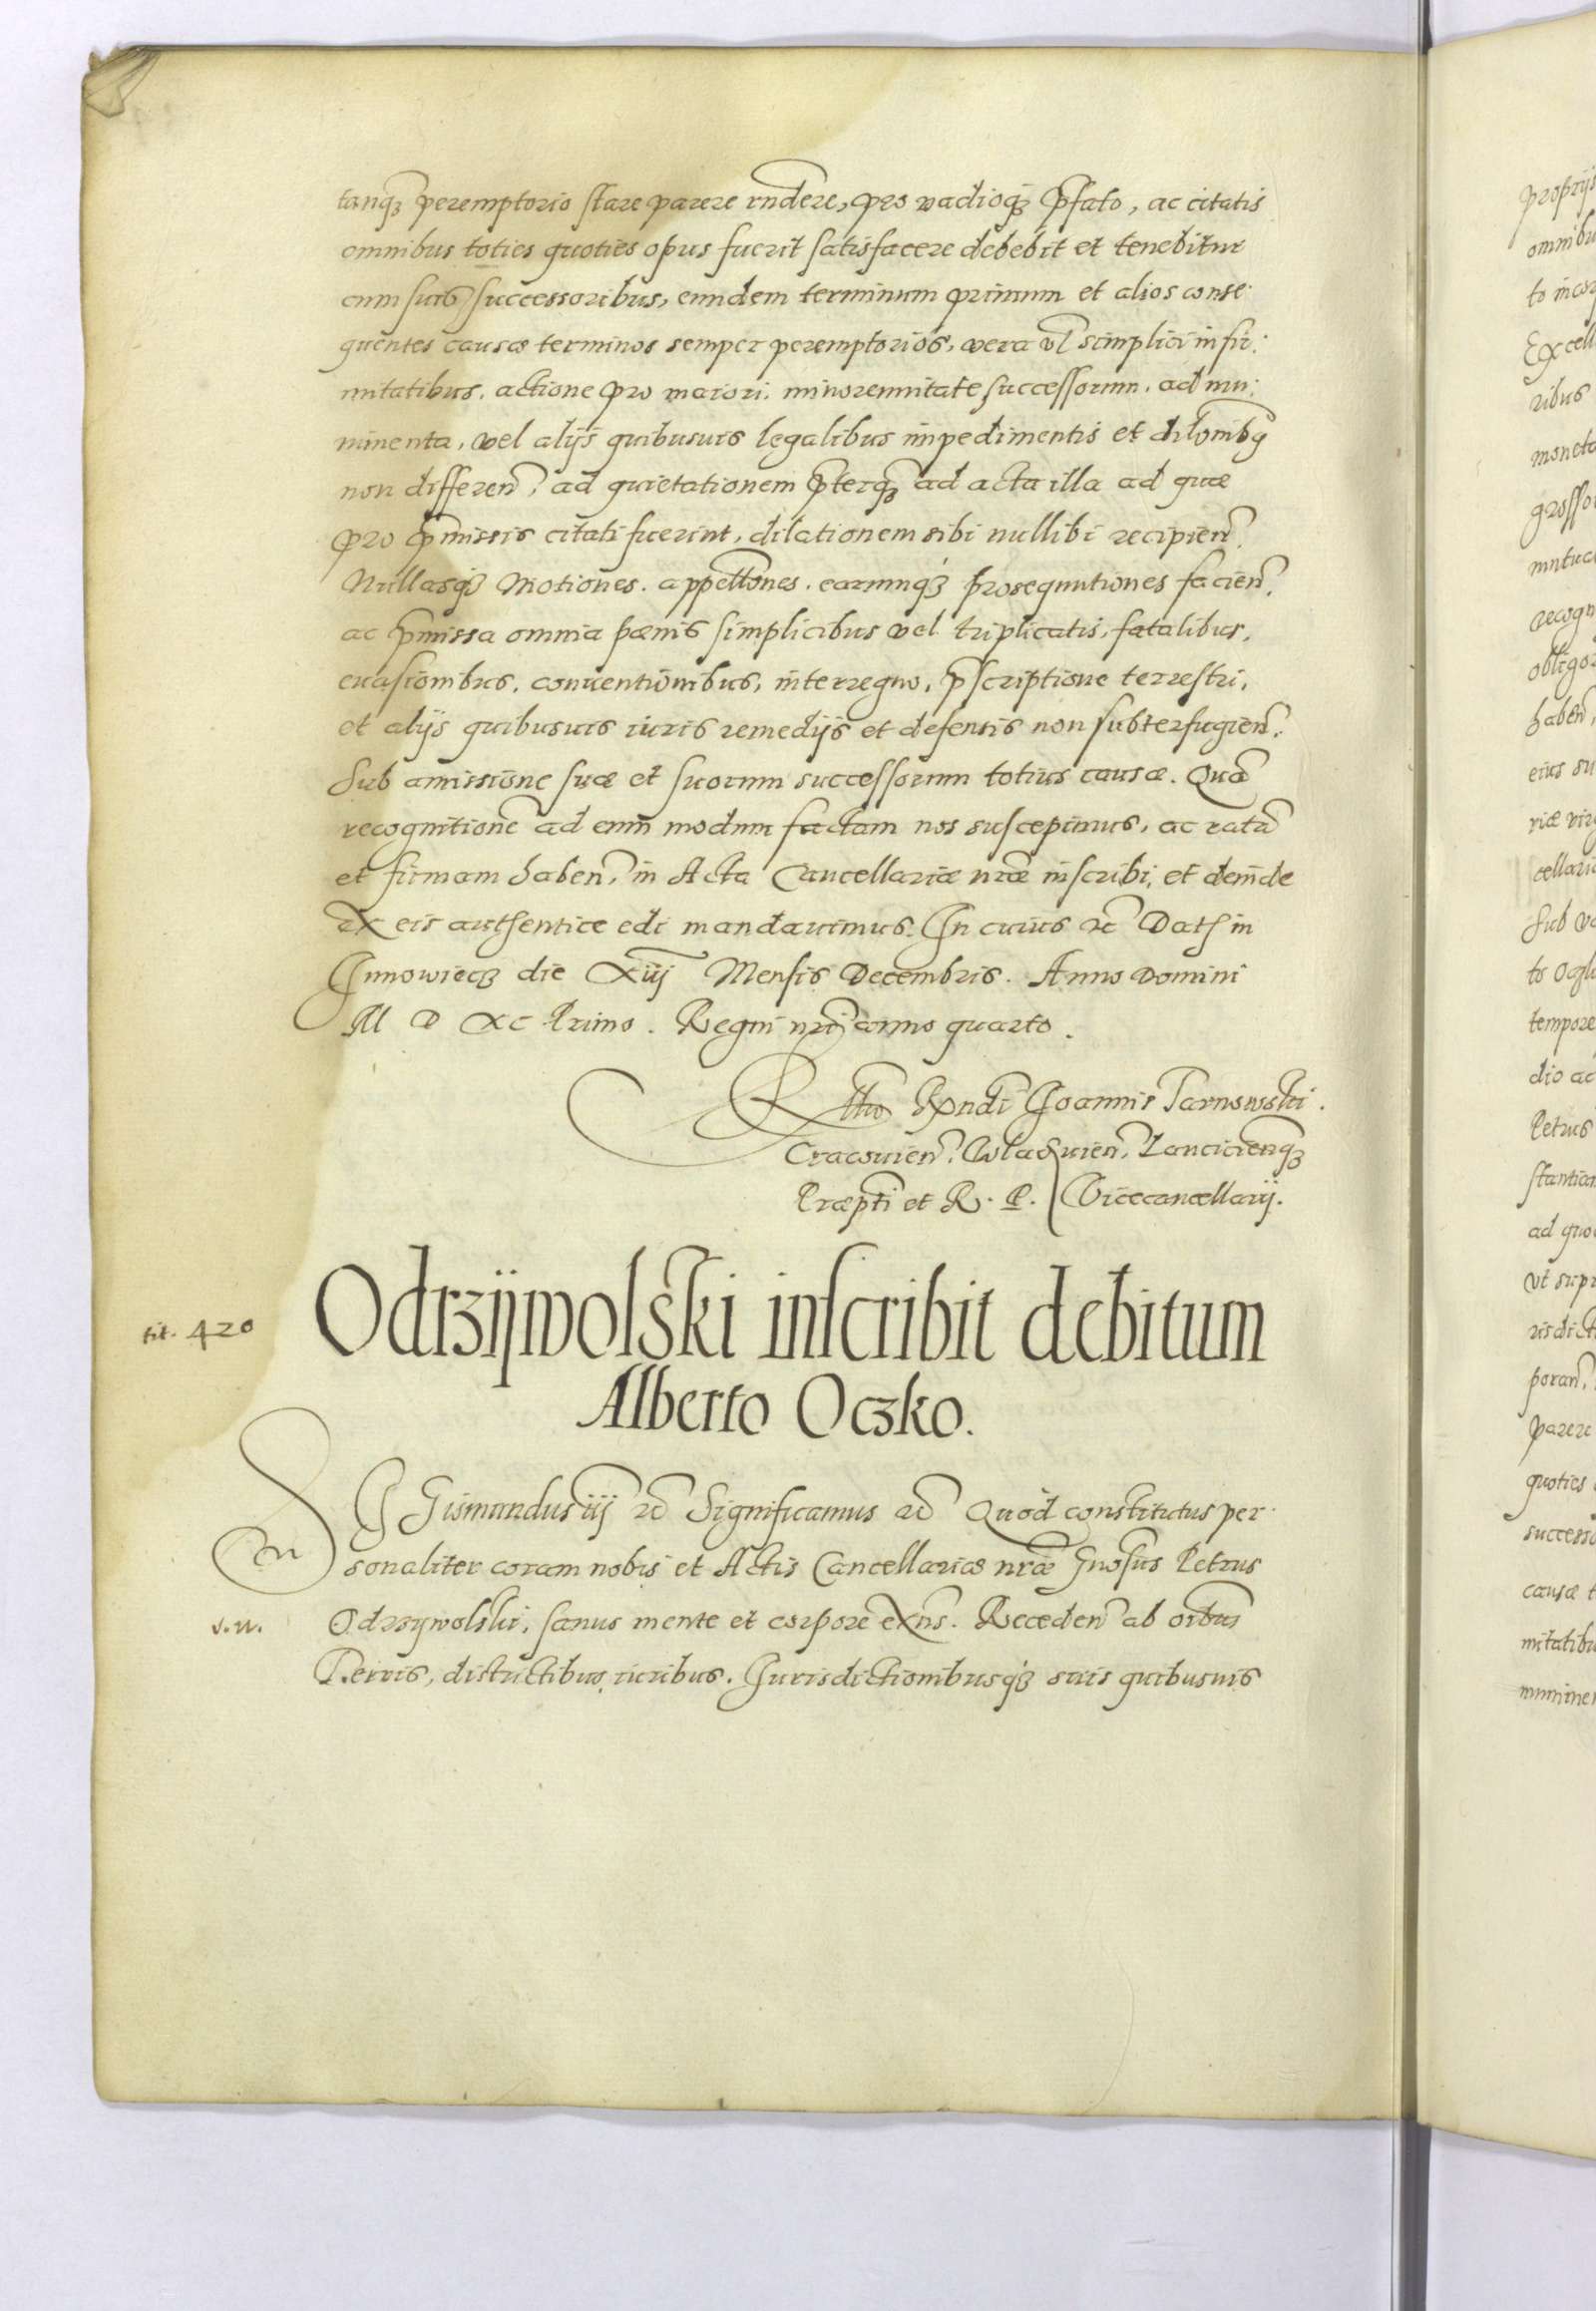 tanq3 peremptorio stare parere rndere, pro vadioq3 pfato, ac citatis
omnibus toties quoties opus fuerit satisfacere debebit et tenebitur
cum suis successoribus, eundem terminum primum et alios conse-
quentes causae terminos semper peremptorios, vera vl simplici infir:
mitatibus, actione pro maiori, minorennitate successorum, ad mu:
nimenta, vel alijs quibusuis legalibus impedimentis et dilonibq
non differen. ad quietationem pterq3 ad acta illa ad quae
pro pmissis citati fuerint, dilationem sibi nullibi recipien.
Nullasq3 Motiones. appellones. earumq3 prosequutiones facien.
ac pmissa omnia paenis simplicibus vel triplicatis, fatalibus,
euasionibus, conuentionibus, interregno, pscriptione terrestri,
et alijs quibusuis iuris remedijs et defensis non subterfugien.
Sub amissione suae et suorum successorum totius causae. Quã
recognitionẽ ad eum modum factam nos suscepimus, ac ratã
et firmam haben. in Acta Cancellariae nrae inscribi, et deinde
ex eis authentice edi mandauimus. In cuius rc Dat in
Innowiecz die Xiij Mensis Decembris. Anno Domini
M D XC Primo. Regni nri anno quarto.
Rltio Rndi Joannis Tarnowski.
Cracouien. Wladiuien. Lancicienq3
Praepti et R. P. Vicecancellarij.
tit. 420
Odrzijwolski inscribit debitum
Alberto Oczko.
SIGismundus iij rc Significamus rc Quòd constitutus per-
sonaliter coram nobis et Actis Cancellariae nrae Gnosus Petrus
Odrzywolski, sanus mente et corpore exns. Receden ab oibus
Terris, districtibus, iuribus. Jurisdictionibusq3 suis quibusuis